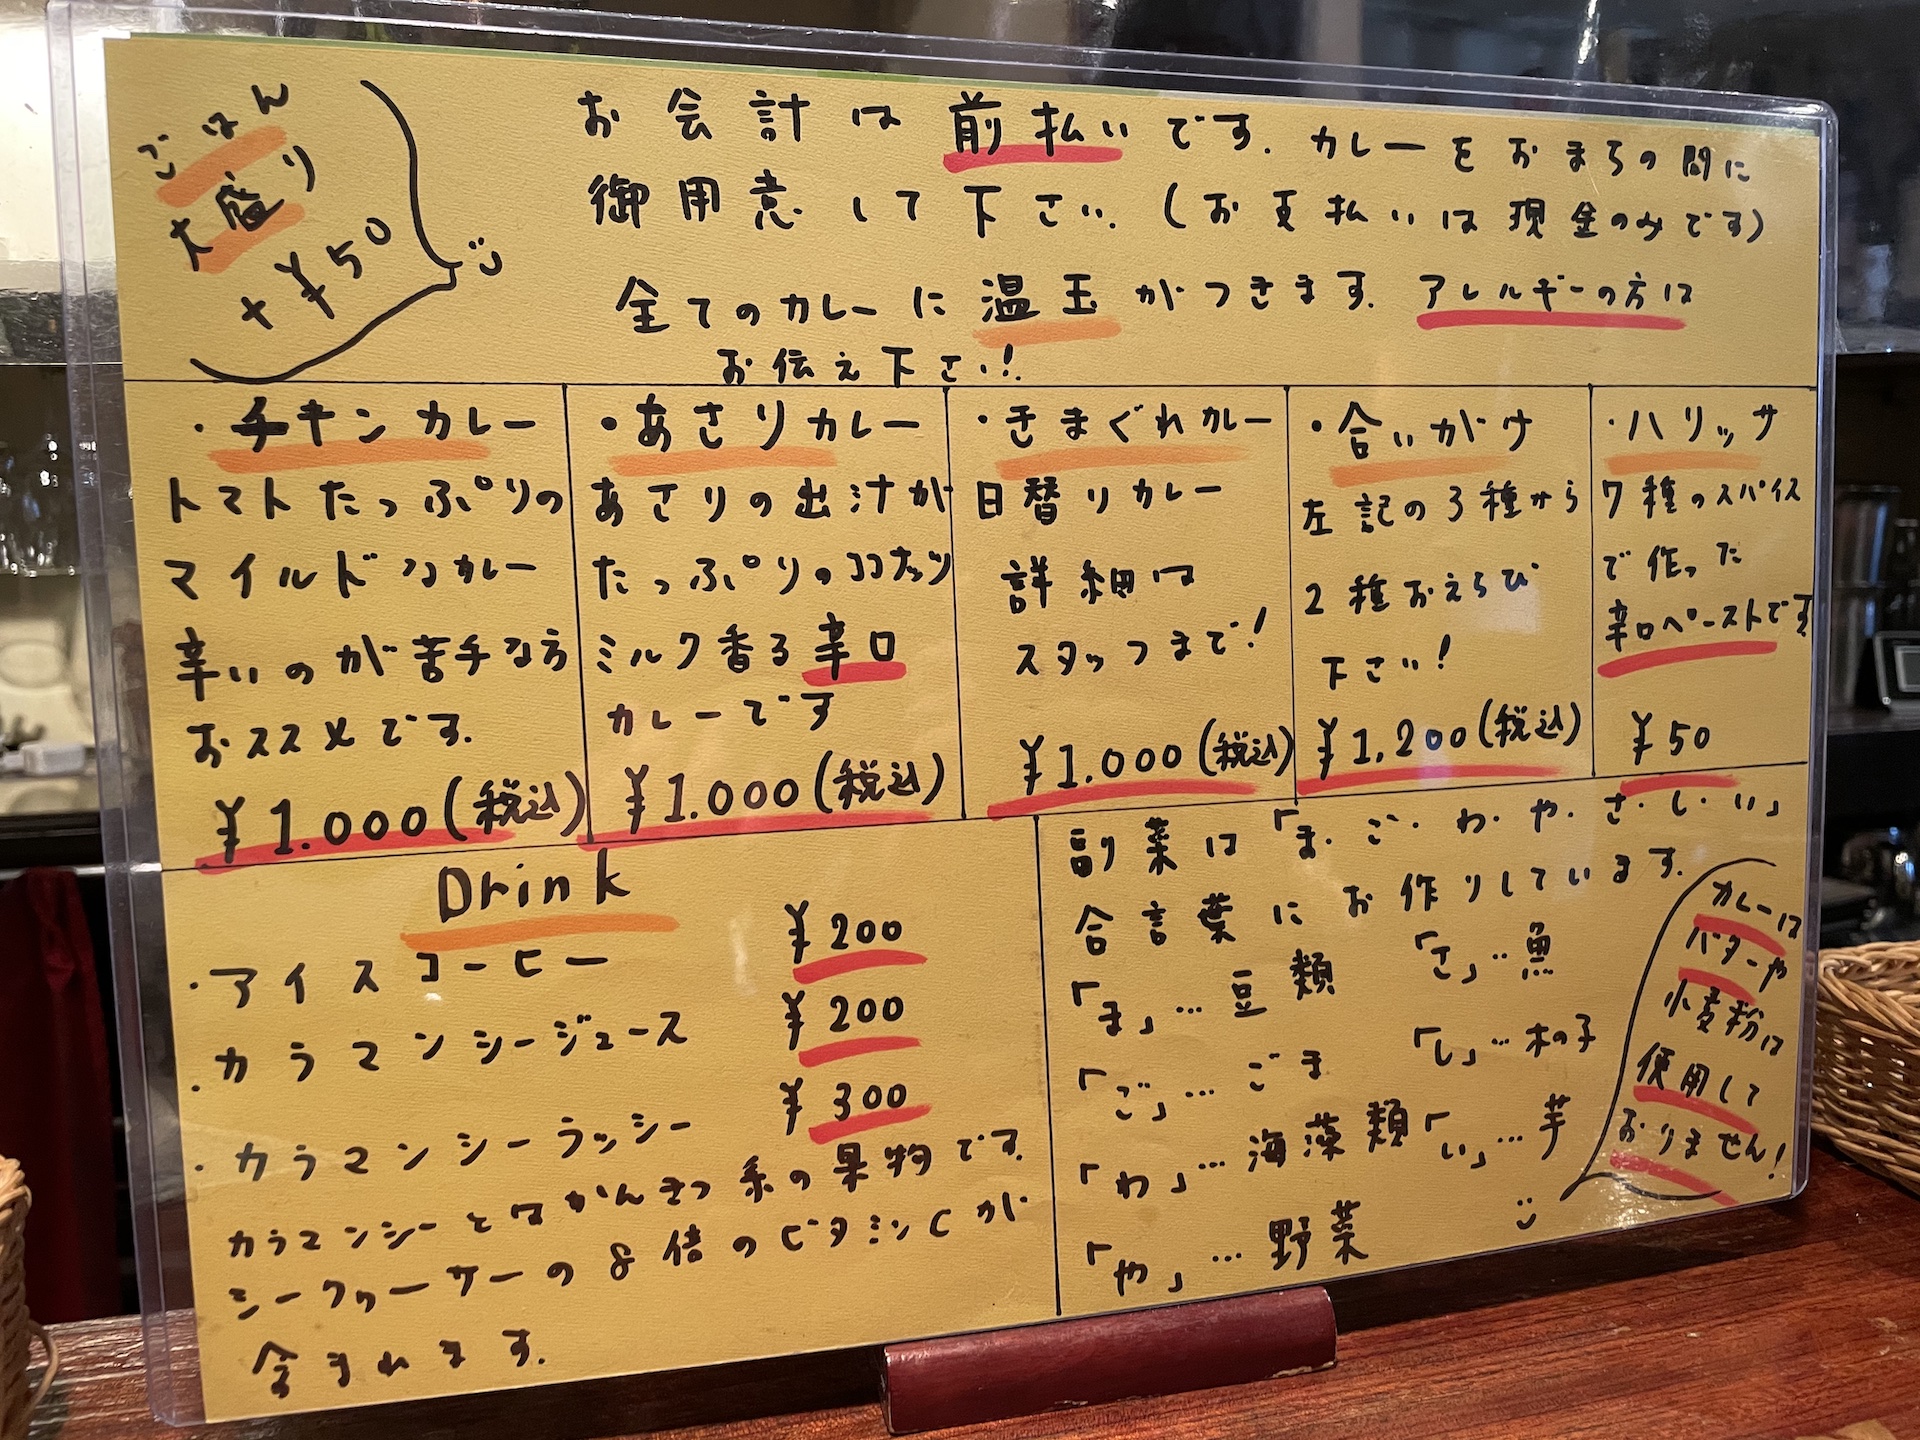 ごはん
大盛り
+¥50
お会計は前払いです. カレーをおまちの間に
御用意して下さい. (お支払いは現金のみです)
全てのカレーに温玉がつきます. アレルギーの方は
お伝え下さい!
・チキンカレー
トマトたっぷりの
マイルドなカレー
辛いのが苦手な方
おススメです.
¥1.000(税込)
・あさりカレー
あさりの出汁が
たっぷりのココナッツ
ミルク香る辛口
カレーです
¥1.000(税込)
・きまぐれカレー
日替りカレー
詳細は
スタッフまで!
¥1.000(税込)
・合いがけ
左記の3種から
2種おえらび
下さい!
¥1,200(税込)
・ハリッサ
7種のスパイス
で作った
辛口ペーストです
¥50
Drink
・アイスコーヒー ¥200
・カラマンシージュース ¥200
・カラマンシーラッシー ¥300
カラマンシーとはかんきつ系の果物です.
シークヮーサーの8倍のビタミンCが
含まれます.
副菜は「ま・ご・わ・や・さ・し・い」
合言葉にお作りしています.
「ま」…豆類
「ご」…ごま
「わ」…海藻類
「や」…野菜
「さ」…魚
「し」…木の子
「い」…芋
カレーは
バターや
小麦粉は
使用して
おりません!